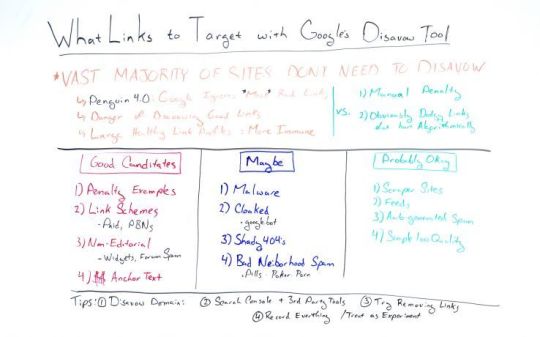 What Links to Target with Google's Disavow Tool
*VAST MAJORITY OF SITES DON'T NEED TO DISAVOW
↳ Penguin 4.0: Google Ignores "Most" Bad Links
↳ Danger of Disavowing Good Links
↳ Large Healthy Link Profiles: More Immune
vs.
1) Manual Penalty
2) Obviously Dodgy Links
that hurt Algorithmically
Good Canditates
1) Penalty Examples
2) Link Schemes
- Paid, PBNs
3) Non-Editorial
- Widgets, Forum Spam
4) Anchor Text
Maybe
1) Malware
2) Cloaked
- googlebot
3) Shady 404's
4) Bad Neiborhood Spam
- Pills - Poker Porn
Probably Okay
1) Scraper Sites
2) Feeds
3) Auto-generated Spam
4) Simple Low Quality
Tips: ① Disavow Domain: ② Search Console + 3rd Party Tools ③ Try Removing Links
④ Record Everything / Treat as Experiment